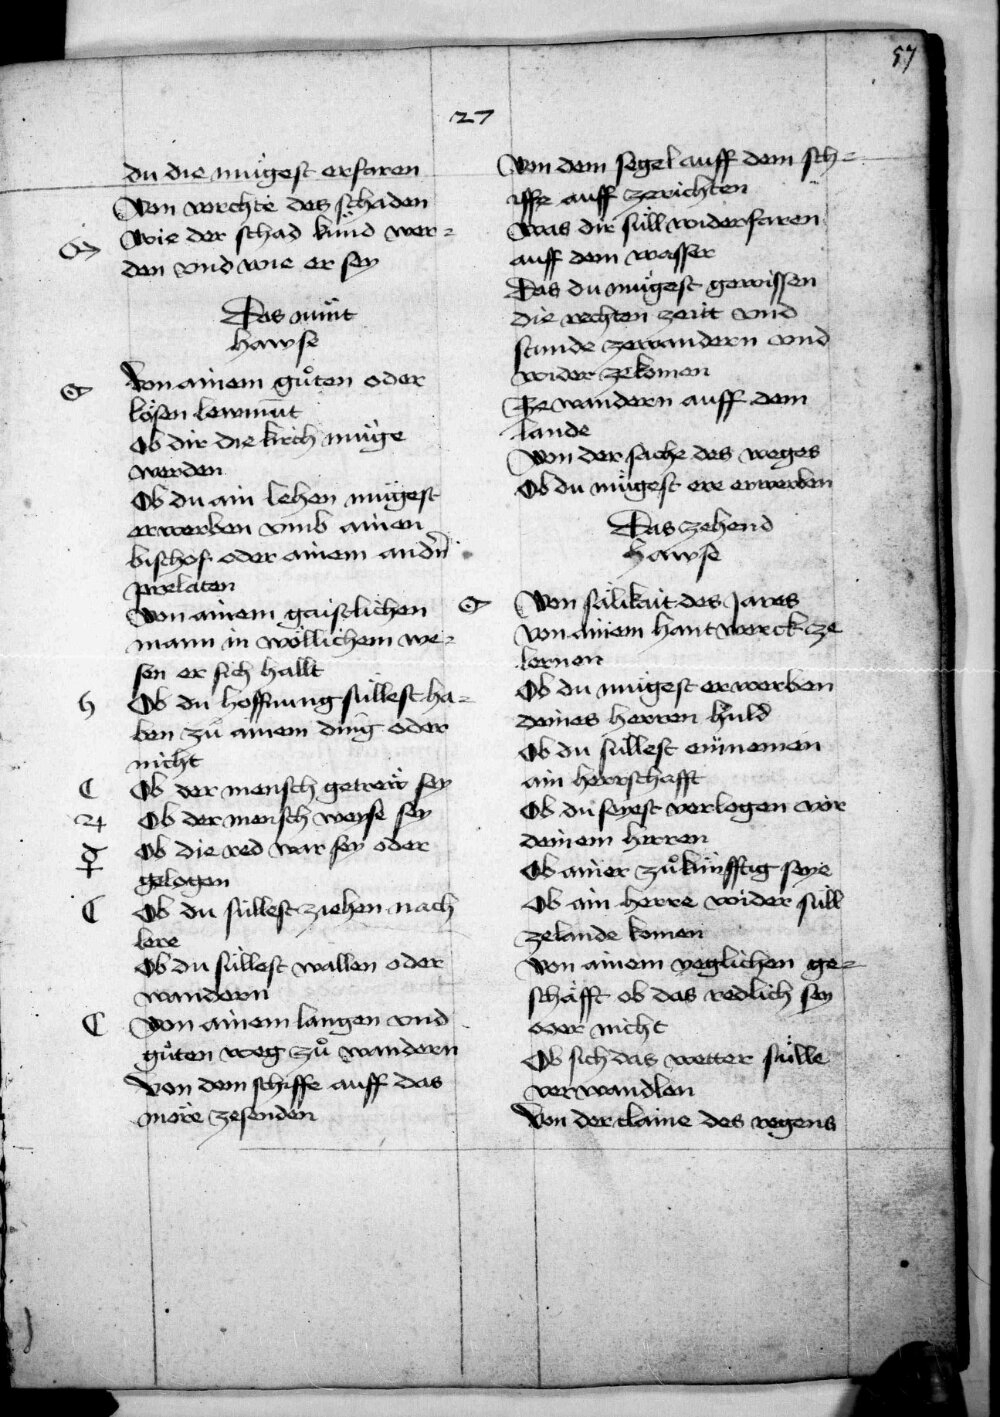 57
27
du die mügest erfaren
Von vorchte des schaden
Wie der schad künd wer=
den vnd wie er sey
Das nünt
hawse
Von ainem guͦten oder
bösen lewmūt
Ob dir die kirch müge
werden
Ob du ain lehen mügest
erwerben vmb ainen
bischof oder ainem andn̄
prelaten
Von ainem gaistlichen
mann in wöllichem we=
sen er sich hallt
♄ Ob du hoffnung süllest ha=
ben zuͦ ainem ding oder
nicht
☾ Ob der mensch getrew sey
♃ Ob der mensch weyse sey
☿ Ob die red war sey oder
gelogen
☾ Ob du süllest ziehen nach
lere
Ob du süllest wallen oder
wandern
☾ Von ainem langen vnd
guͦten weg zuͦ wandern
Von dem schiffe auff das
möre zesenden
Von dem segel auff dem sch=
iffe auff zerichten
Was dir süll widerfaren
auff dem wasser
Das du mügest gewissen
die rechten zeitt vnd
stunde zewandern vnd
wider zekomen
Ze wandern auff dem
lande
Von der sache des weges
Ob du mügest ere erwerben
Das zehend
hawse
Von sälikait des Jares
Von ainem hantwerck ze
lernen
Ob du mügest erwerben
deines herren huld
Ob du süllest einnemen
ain herrschafft
Ob du seyest verlogen vor
deinem herren
Ob ainer zuͦkünfftig seye
Ob ain herre wider süll
zelande komen
Von ainem yeglichen ge=
schäfft ob das redlich sey
oder nicht
Ob sich das wetter sülle
verwandlen
Von der claine des regens